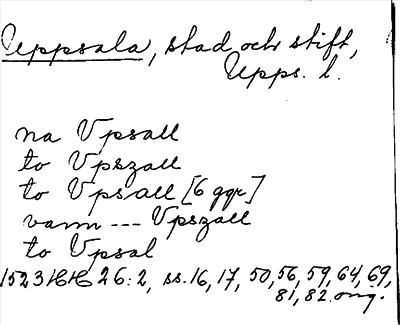 Uppsala, stad och stift,
Upps. l.
na Vpsall
to Vpszall
to Vpsall [6 ggr]
vam --- Vpszall
to Vpsal
1523 HH 26:2, ss. 16, 17, 50, 56, 59, 64, 69,
81, 82. omg.